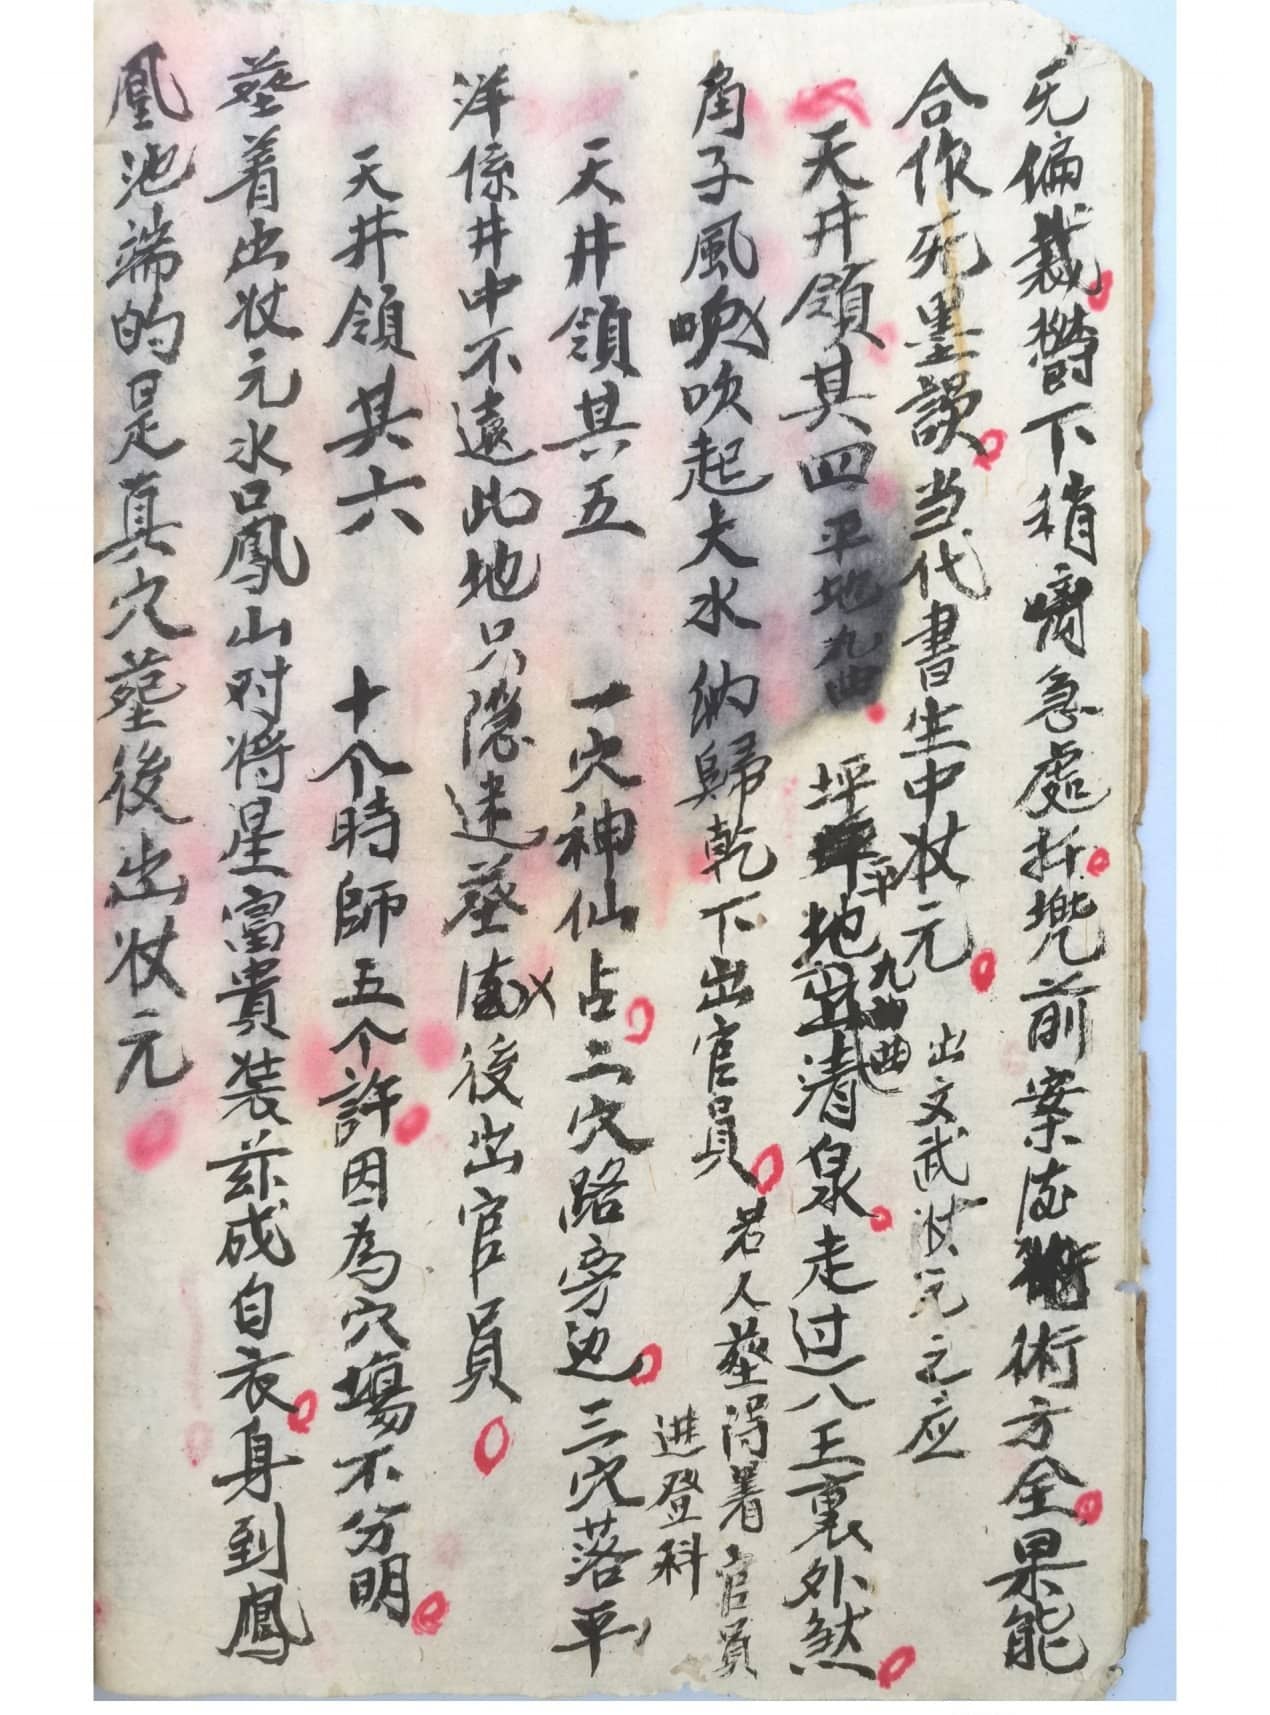 无偏裁欎下稍啇急處扦㙂前案砝術方全果能
合作死墨訣当代書生中状元 出文武状元之应
天井領其四 平地九曲 坪平地九曲出清泉走过八王裏外煞
角子風吹起大水納歸乾下出官員 若人葬得着官員
進登科
天井領其五 一穴神仙占二穴路旁边三穴落平
洋係井中不遠此地只隐迷葬後出官員
天井領其六 十个時師五个許因為穴場不分明
葬着出状元水口鳳山对将星富貴装兹成自衣身到鳳
凰池端的是真穴葬後出状元